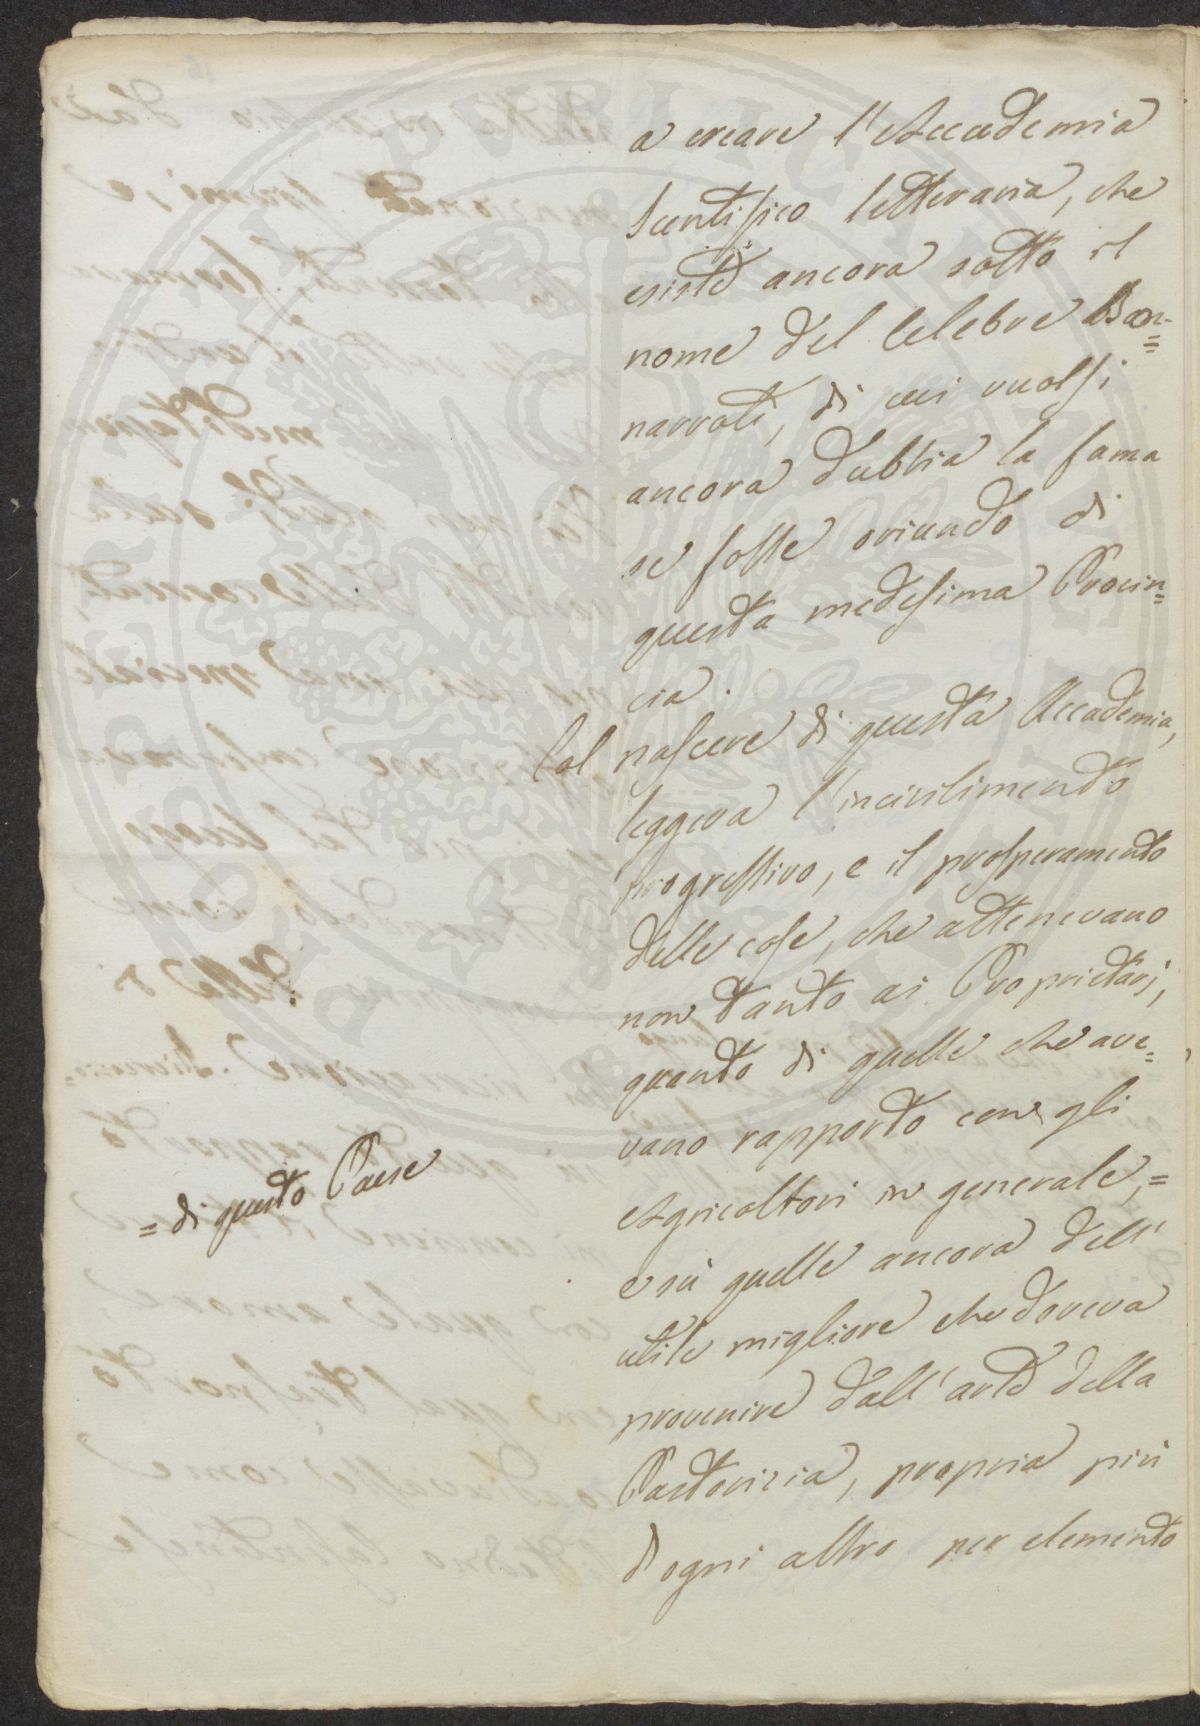 a creare l'Accademia
Scentifico letteraria, che
esiste ancora sotto il
nome del celebre Bon=
narroti, di cui vuolsi
ancora dubbia la fama
se fosse oriundo di
questa medesima Provin=
cia.
Col nascere di questa Accademia,
leggeva l'incivilimento
progressivo, e il prosperamento
delle cose, che attenevano
non tanto ai Proprietarj,
quanto di quelle che ave=
vano rapporto con gli
Agricoltori in generale, =
= di questo Paese
e sù quelle ancora dell'
utile migliore che doveva
provenire dall'arte della
Pastorizia, propria più
d'ogni altro per elemento